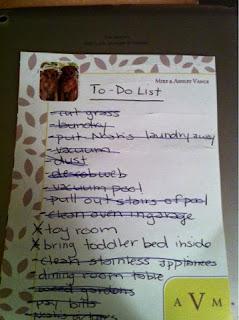 MIKE & ASHLEY VANCE
To-Do List
- cut grass
- laundry
- put Noah's laundry away
- vacuum
- dust
- descobweb
- vacuum pool
- pull out stairs of pool
- clean oven in garage
X toy room
X bring toddler bed inside
- clean stainless appliances
- dining room table
- weed gardens
- pay bills
A V M